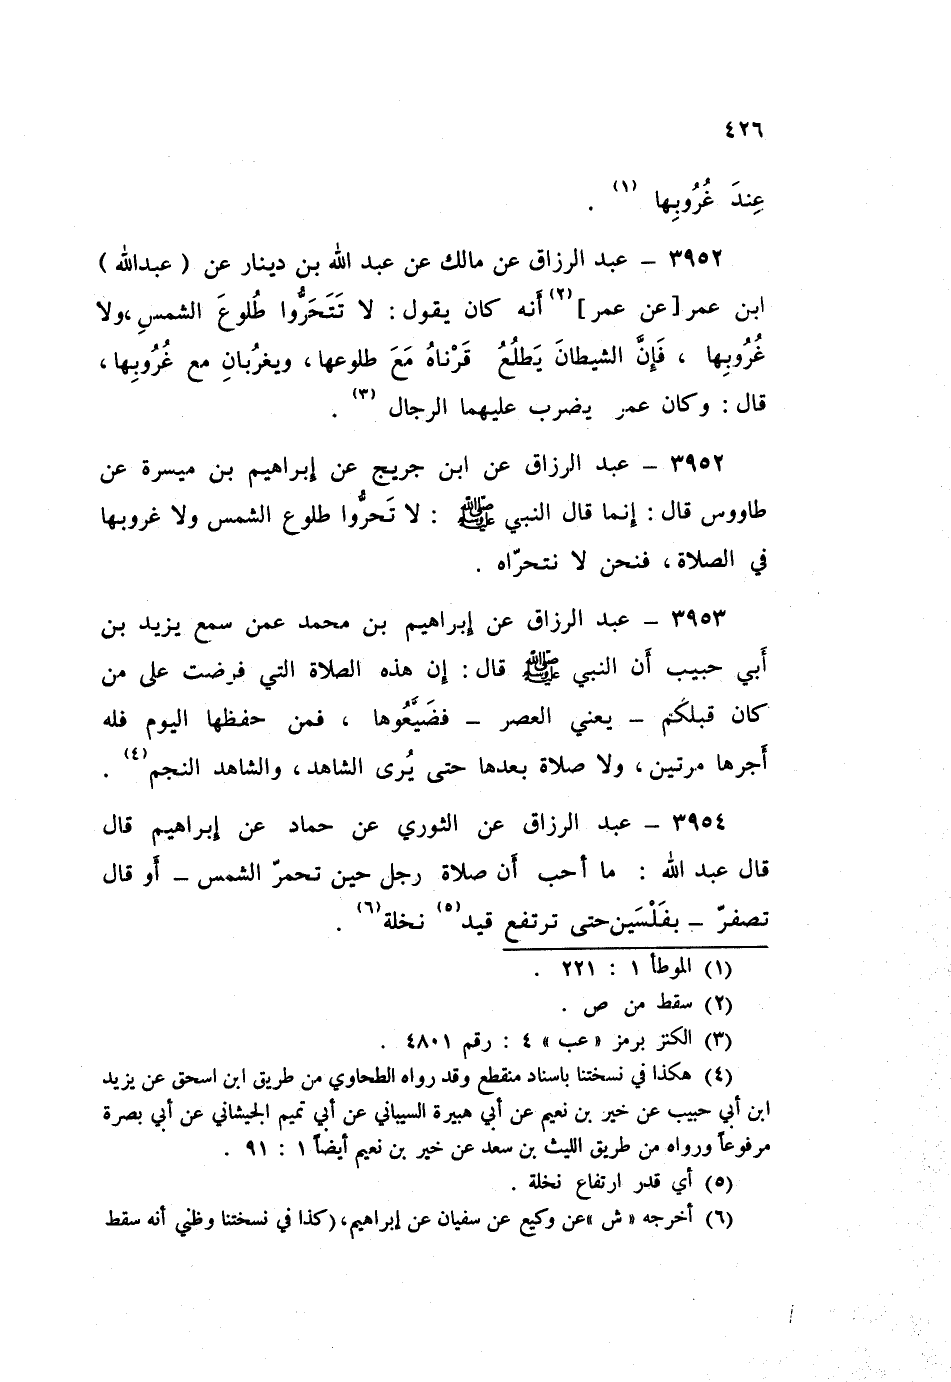 ٤٢٦
عِندَ غُرُوبِها (١) .
٣٩٥٢ – عبد الرزاق عن مالك عن عبد الله بن دينار عن ( عبدالله )
ابن عمر [عن عمر] (٢) أَنه كان يقول : لا تَتَحَرُّوا طُلوعَ الشمسِ ،ولا
غُرُوبِها ، فَإِنَّ الشيطانَ يَطلُعُ قَرْناهُ مَعَ طلوعها ، ويغرُبانِ مع غُرُوبِها ،
قال : وكان عمر يضرب عليهما الرجال (٣) .
٣٩٥٢ – عبد الرزاق عن ابن جريج عن إبراهيم بن ميسرة عن
طاووس قال : إنما قال النبي ﷺ : لا تَحرُّوا طلوع الشمس ولا غروبها
في الصلاة ، فنحن لا نتحرّاه .
٣٩٥٣ – عبد الرزاق عن إبراهيم بن محمد عمن سمع يزيد بن
أَبي حبيب أَن النبي ﷺ قال : إن هذه الصلاة التي فرضت على من
كان قبلكُم – يعني العصر – فضَيَّعُوها ، فمن حفظها اليوم فله
أَجرها مرتين ، ولا صلاة بعدها حتى يُرى الشاهد ، والشاهد النجم (٤) .
٣٩٥٤ – عبد الرزاق عن الثوري عن حماد عن إبراهيم قال
قال عبد الله : ما أحب أَن صلاة رجل حين تحمرّ الشمس – أَو قال
تصفرّ – بفَلْسَين حتى ترتفع قيد (٥) نخلة (٦) .
(١) الموطأ ١ : ٢٢١ .
(٢) سقط من ص .
(٣) الكنز برمز «عب» ٤ : رقم ٤٨٠١ .
(٤) هكذا في نسختنا باسناد منقطع وقد رواه الطحاوي من طريق ابن اسحق عن يزيد
ابن أبي حبيب عن خير بن نعيم عن أبي هبيرة السيباني عن أبي تميم الجيشاني عن أبي بصرة
مرفوعاً ورواه من طريق الليث بن سعد عن خير بن نعيم أيضاً ١ : ٩١ .
(٥) أي قدر ارتفاع نخلة .
(٦) أخرجه «ش» عن وكيع عن سفيان عن إبراهيم، (كذا في نسختنا وظني أنه سقط